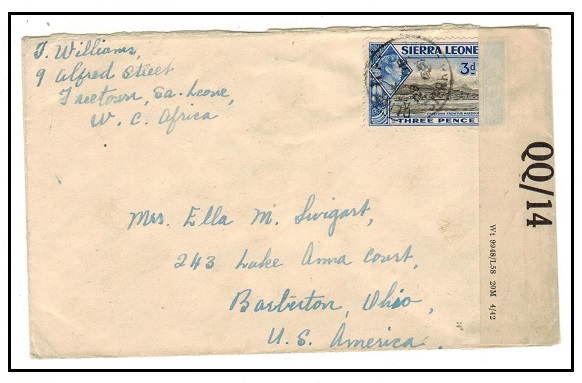 T. Williams,
9 Alfred Street
Freetown, Sa. Leone,
W. C. Africa
SIERRA LEONE
3d
THREE PENCE
QQ/14
Wt 9948/L58 20M 4/42
Mrs. Ella M. Swigart,
243 Lake Anna Court,
Barberton, Ohio,
U. S. America.